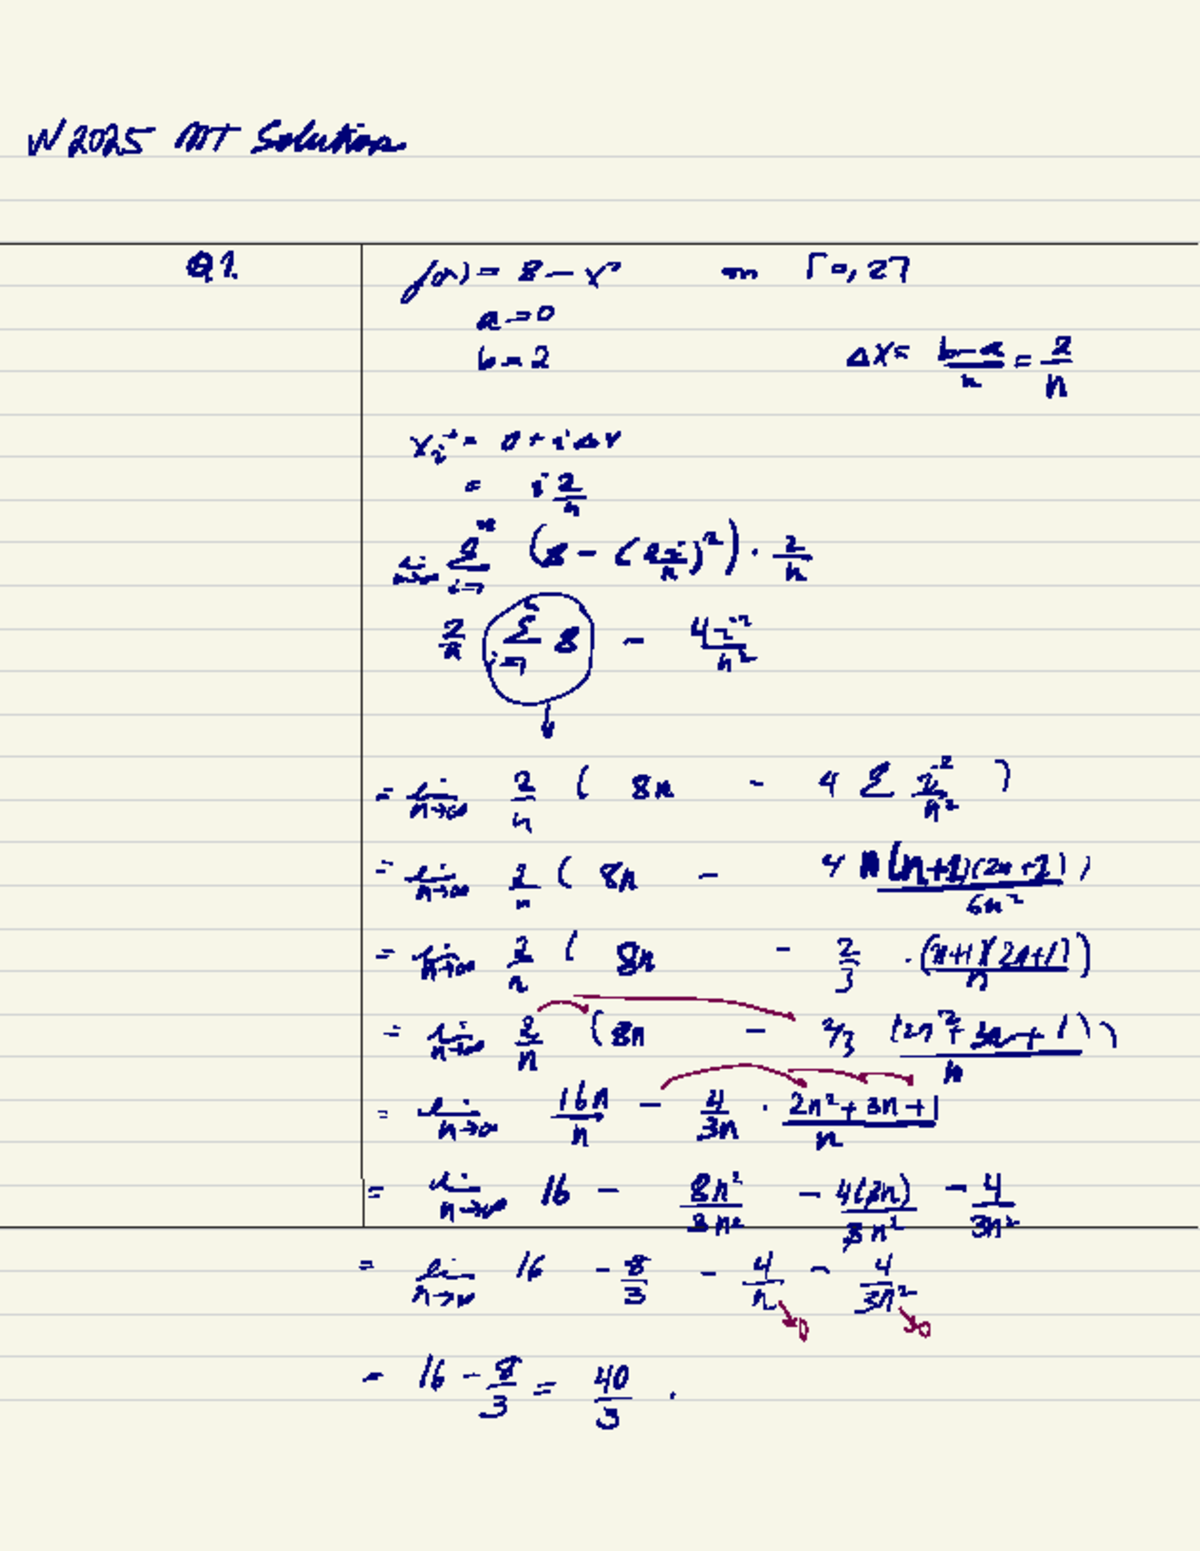 W 2025 MT Solutions
Q1.
f(x) = 8 - x² on [0, 2]
a = 0
b = 2
Δx = (b-a)/n = 2/n
xᵢ* = 0 + iΔx
= i 2/n
lim n→∞ Σ i=1 n (8 - (2i/n)²) · 2/n
2/n Σ i=1 n 8 - 4i²/n²
↓
= lim n→∞ 2/n ( 8n - 4 Σ i²/n² )
= lim n→∞ 2/n ( 8n - 4 n(n+1)(2n+1)/6n² )
= lim n→∞ 2/n ( 8n - 2/3 · (n+1)(2n+1)/n )
= lim n→∞ 2/n (8n - 2/3 (2n²+3n+1)/n )
= lim n→∞ 16n/n - 4/3n · (2n²+3n+1)/n
= lim n→∞ 16 - 8n²/3n² - 4(3n)/3n² - 4/3n²
= lim n→∞ 16 - 8/3 - 4/n - 4/3n²
→0 →0
= 16 - 8/3 = 40/3 .